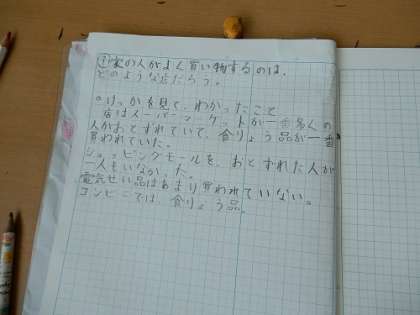 ①家の人がよく買い物するのは、
どのような店だろう。
○けっかを見て、わかったこと
店はスーパーマーケットが一番多くの
人がおとずれていて、食りょう品が一番
買われていた。
ショッピングモールを、おとずれた人が
一人もいなかった。
電気せい品はあまり買われていない。
コンビニでは、食りょう品、